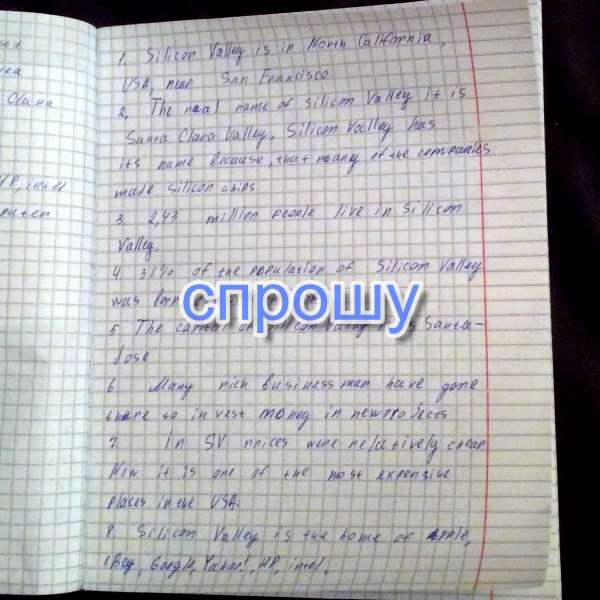 1. Silicon Valley is in North California,
USA, near San Francisco
2. The real name of Silicon Valley it is
Santa Clara Valley. Silicon Valley has
its name because, that many of the companies
made silicon chips
3. 2,43 million people live in Silicon
Valley.
4. 37% of the population of Silicon Valley
was born
спрошу
5 The capital of Silicon Vally is Santa-
Jose
6 Many rich businessman have gone
there to invest money in new projects
7. In SV prices were relatively cheap
Now it is one of the most expensive
places in the USA.
8. Silicon Valley is the home of Apple,
eBay, Google, Yahoo!, HP, intel.
Clara
HP, intel